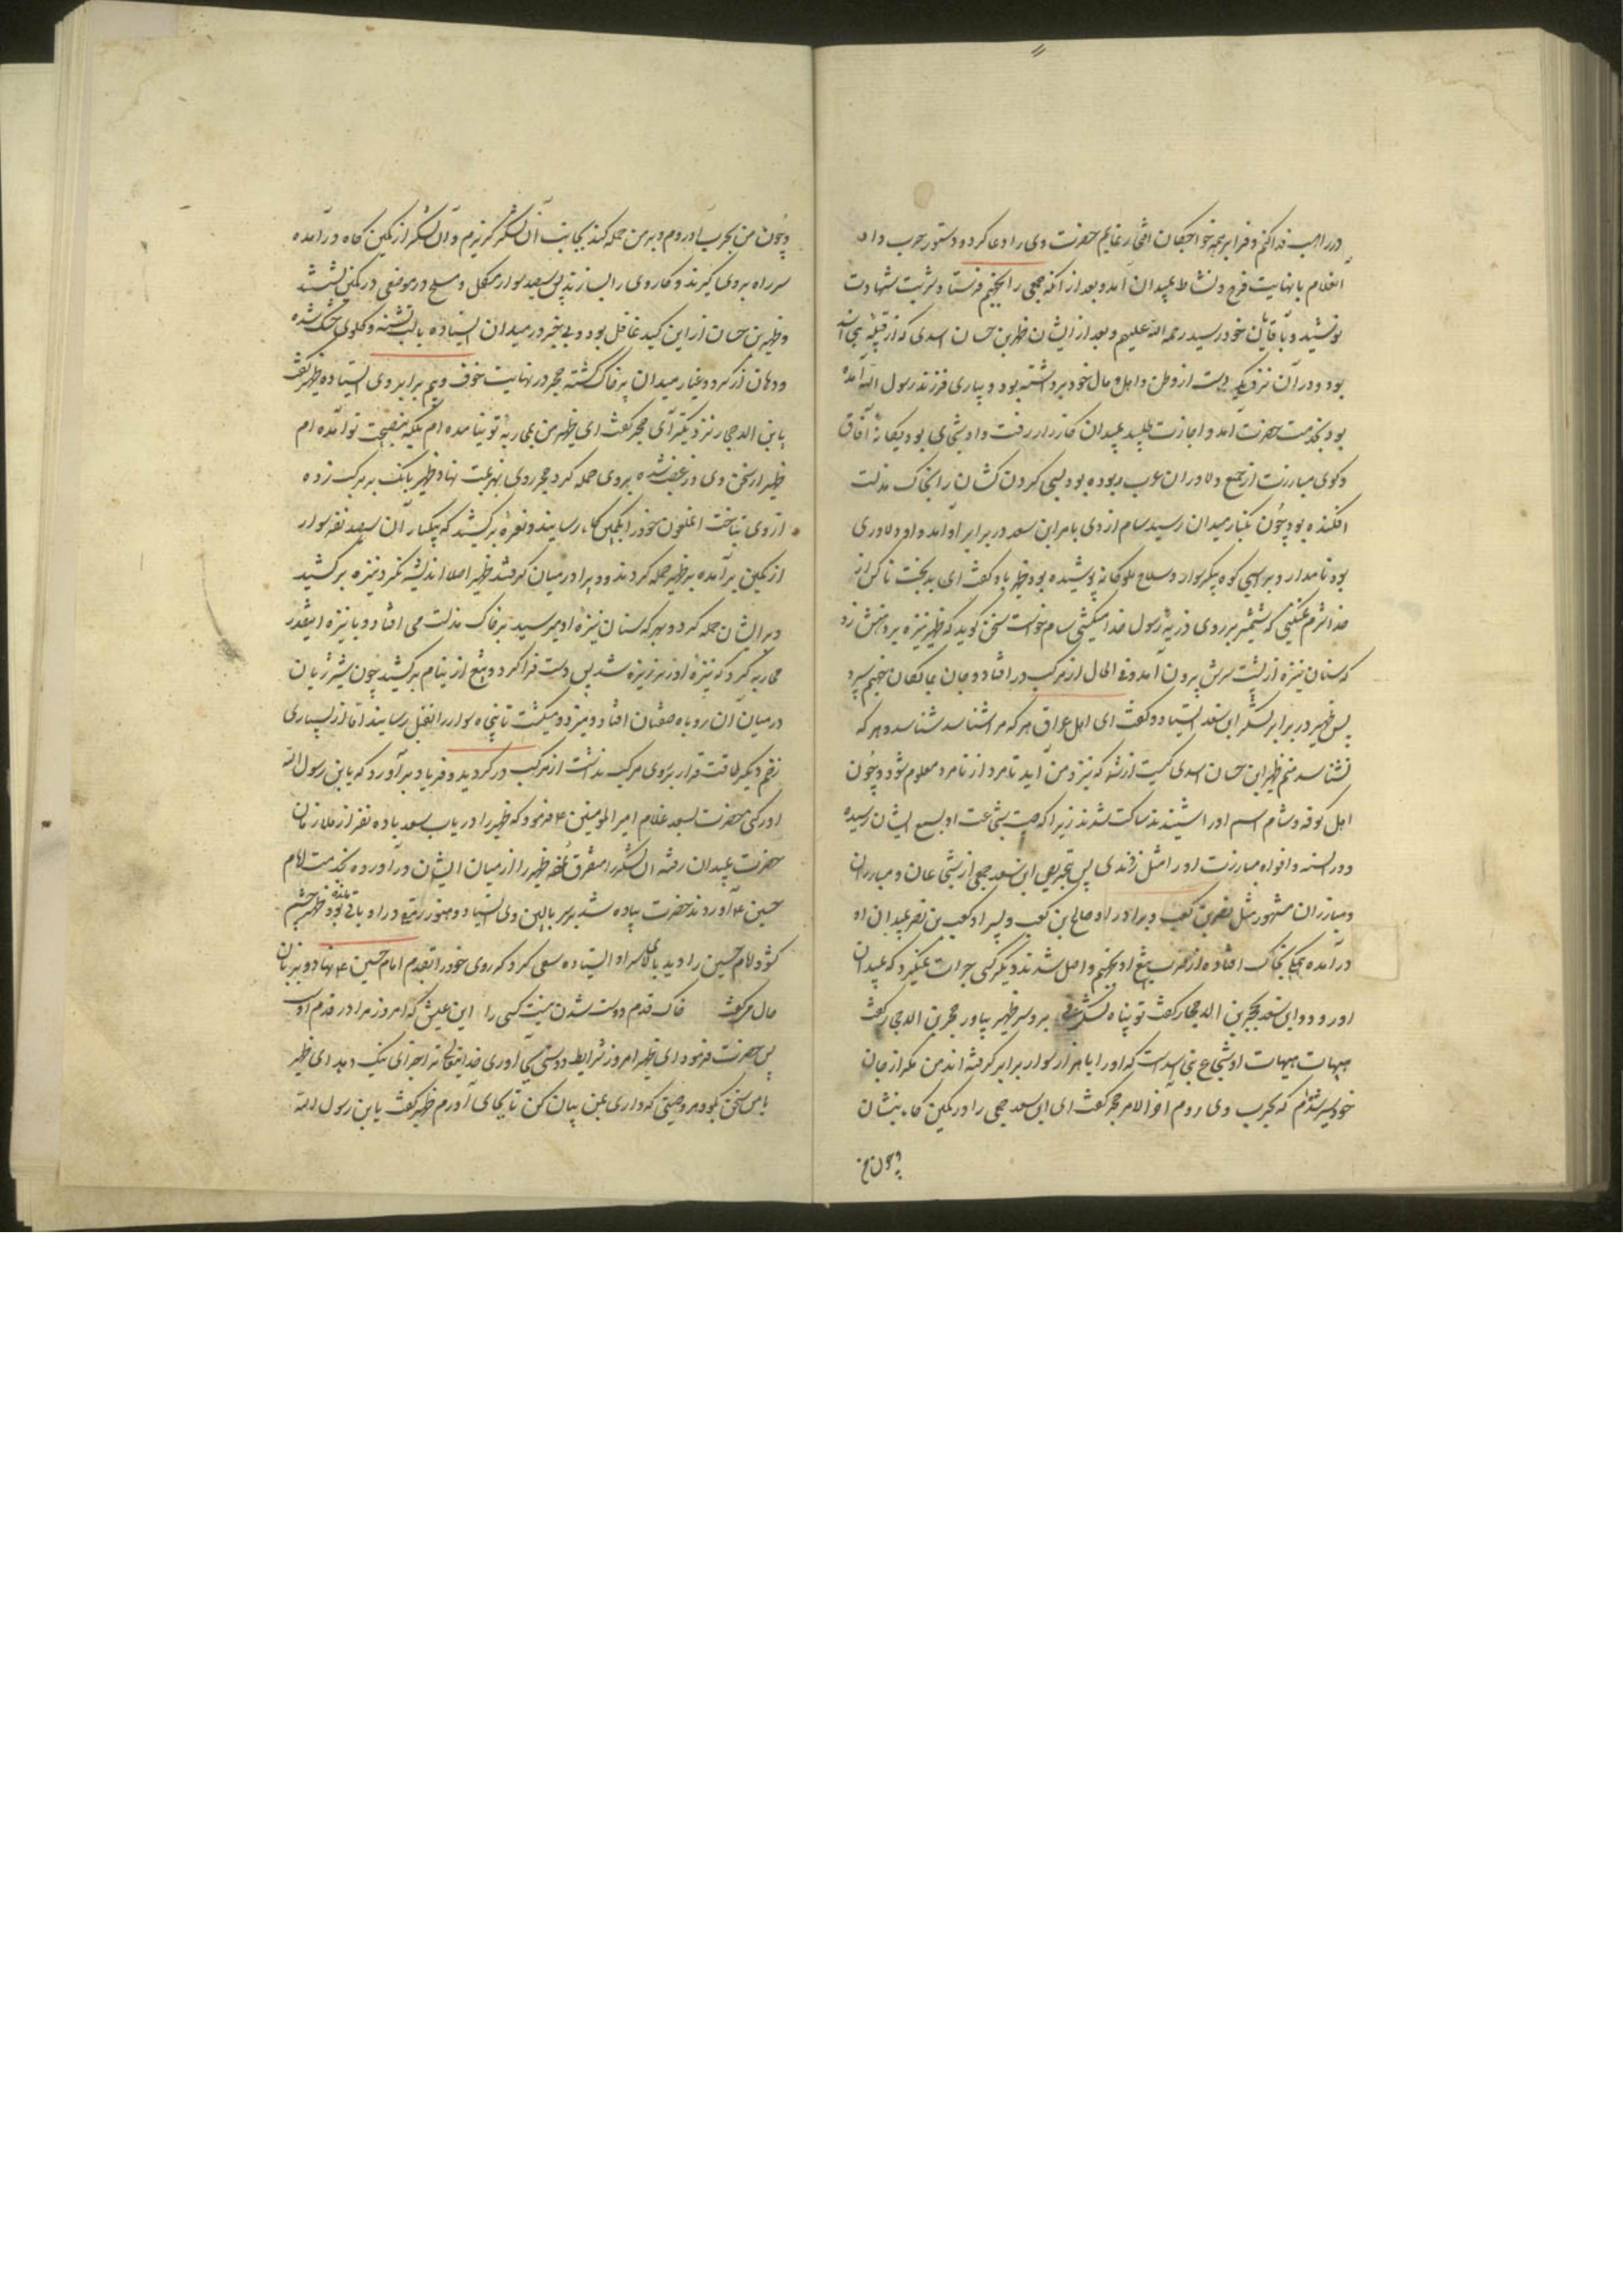 در راهت فدا کنم و فردا بر همه خواجگان افتخار نمایم حضرت وی را دعا کرده و دستور حرب داد
آنغلام با نهایت فرح و نشاط بمیدان آمد و بعد از آنکه جمعی را بجهنم فرستاد شربت شهادت
نوشید و بآقایان خود رسید رحمه الله علیهم و بعد از ایشان ظهیر بن حسان اسدی که از قبیله بنی اسد
بود و در آن نزدیکی دست از وطن و اهل و مال خود برداشته بود و بیاری فرزند رسول الله آمده
بود بخدمت حضرت آمد و اجازت طلبید بمیدان کارزار رفت و او شجاعی بود یگانه آفاق
و گوی مبارزت از جمیع دلاوران عرب ربوده بود بسی گردن کشان را بخاک مذلت
افکنده بود چون بکنار میدان رسید سام ازدی بامر ابن سعد در برابر او آمد و او دلاوری
بود نامدار و بر اسبی کوه پیکر سوار و سلاح ملوکانه پوشیده بود ظهیر باو گفت ای بدبخت ناکس از
خدا شرم نمیکنی که شمشیر بر روی ذریه رسول خدا میکشی سام خواست سخن گوید که ظهیر نیزه بر دهنش زد
که سنان نیزه از پشت سرش بیرون آمد و فی الحال از مرکب در افتاد و جان بمالکان جهنم سپرد
پس ظهیر در برابر لشکر ابن سعد ایستاد و گفت ای اهل عراق هر که مرا شناسد شناسد و هر که
نشناسد منم ظهیر ابن حسان اسدی کیست از شما که نزد من آید تا مرد از نامرد معلوم شود و چون
اهل کوفه و شام اسم او را شنیدند ساکت شدند زیرا که صیت شجاعت او بسمع ایشان رسیده
و در السنه و افواه مبارزت او را مثل زدندی پس بتحریص ابن سعد جمعی از شجاعان و مبارزان
و مبارزان مشهور مثل نصر بن کعب و برادر او صالح بن کعب و پسر او کعب بن نصر بمیدان او
در آمده بخاک افتاده از ضرب تیغ او بجهنم واصل شدند دیگر کسی جرات نمیکرد که بمیدان
او رود و ابن سعد بحجر بن الحجار گفت تو پناه لشکر برو سر ظهیر بیاور حجر بن الحجار گفت
هیهات هیهات او شجاع بنی اسد است که او را با هزار سوار برابر گرفته اند من مگر از جان
خود سیر شده ام که بحرب وی روم آخر الامر حجر گفت ای ابن سعد جمعی را در کمین گاه بنشان
و چون من
و چون من بحرب او روم و بر من حمله کند بجانب آن لشکر گریزم و آن لشکر از کمین گاه در آمده
سر راه بر وی گیرند و کار وی را بسازند پس سیصد سوار مکمل و مسلح در موضعی در کمین نشستند
و ظهیر بن حسان از این کید غافل بود و بی خبر در میدان ایستاده با لب تشنه و گلوی خشک شده
و دهان از گرد و غبار میدان پر خاک گشته حجر در نهایت خوف و بیم برابر وی ایستاده ظهیر گفت
یا بن الحجار نزدیکتر آی حجر گفت ای ظهیر من بمحاربه تو نیامده ام بلکه بنصیحت تو آمده ام
ظهیر از سخن وی در غضب شده بر وی حمله کرد حجر روی بهزیمت نهاد ظهیر بانک بر مرکب زده
از وی بتاخت انملعون خود را بکمین گاه رسانید و نعره برکشید که بیکبار آن سیصد نفر سوار
از کمین بر آمده بر ظهیر حمله کردند و ویرا در میان گرفتند ظهیر اصلا اندیشه نکرد نیزه برکشید
و بر ایشان حمله کرد و بهر که سنان نیزه او میرسید بر خاک مذلت می افتاد و با نیزه اینقدر
محاربه کرد که نیزه او ریز ریزه شد پس دست فرا کرد و تیغ از نیام برکشید چون شیر ژیان
در میان آن روباه صفتان افتاد و میزد و میکشت تا پنجاه سوار را بقتل رسانید اما از بسیاری
زخم دیگر طاقت قرار بر وی مرکب نداشت از مرکب در گردید و فریاد بر آورد که یا بن رسول الله
ادرکنی حضرت بسعد غلام امیر المومنین ع فرمود که ظهیر را دریاب سعد با ده نفر از ملازمان
حضرت بمیدان رفته آن لشکر را متفرق ساخته ظهیر را از میان ایشان در آورده بخدمت امام
حسین ع آوردند حضرت پیاده شد بر سر بالین وی ایستاد و هنوز رمقی در او باقی مانده بود ظهیر چشم
گشود امام حسین را دید بالای سر او ایستاده سعی کرد که روی خود را بقدم امام حسین ع نهاد و بزبان
حال میگفت خاک قدم دوست شدن نیست کسی را این عیش که امروز مرا در قدم اوست
پس حضرت فرمود ای ظهیر امروز شرایط دوستی بجای آوری خدایتعالی ترا جزای نیک دهد ای ظهیر
با من سخن بگو و هر وصیتی که داری بمن بیان کن تا بجای آورم ظهیر گفت یا بن رسول الله